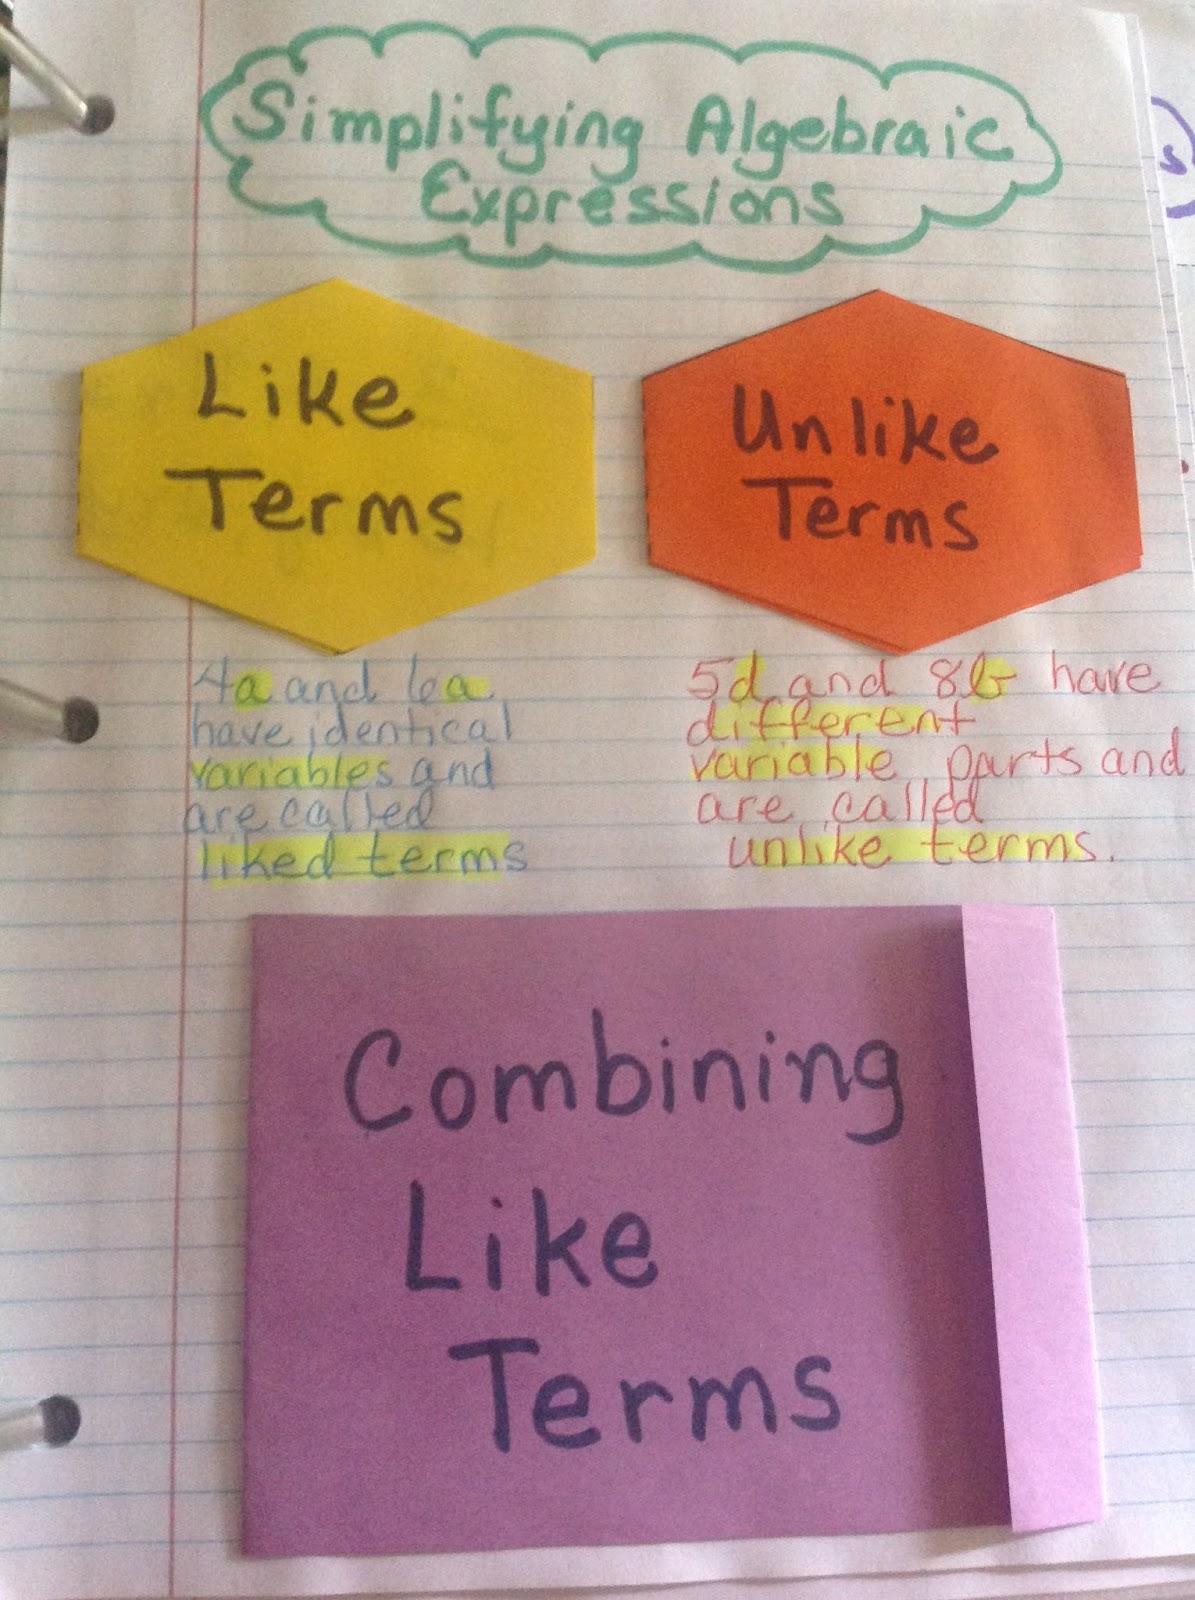 Simplifying Algebraic
Expressions
Like
Terms
Unlike
Terms
4a and 6a
have identical
variables and
are called
liked terms
5d and 8b have
different
variable parts and
are called
unlike terms.
Combining
Like
Terms